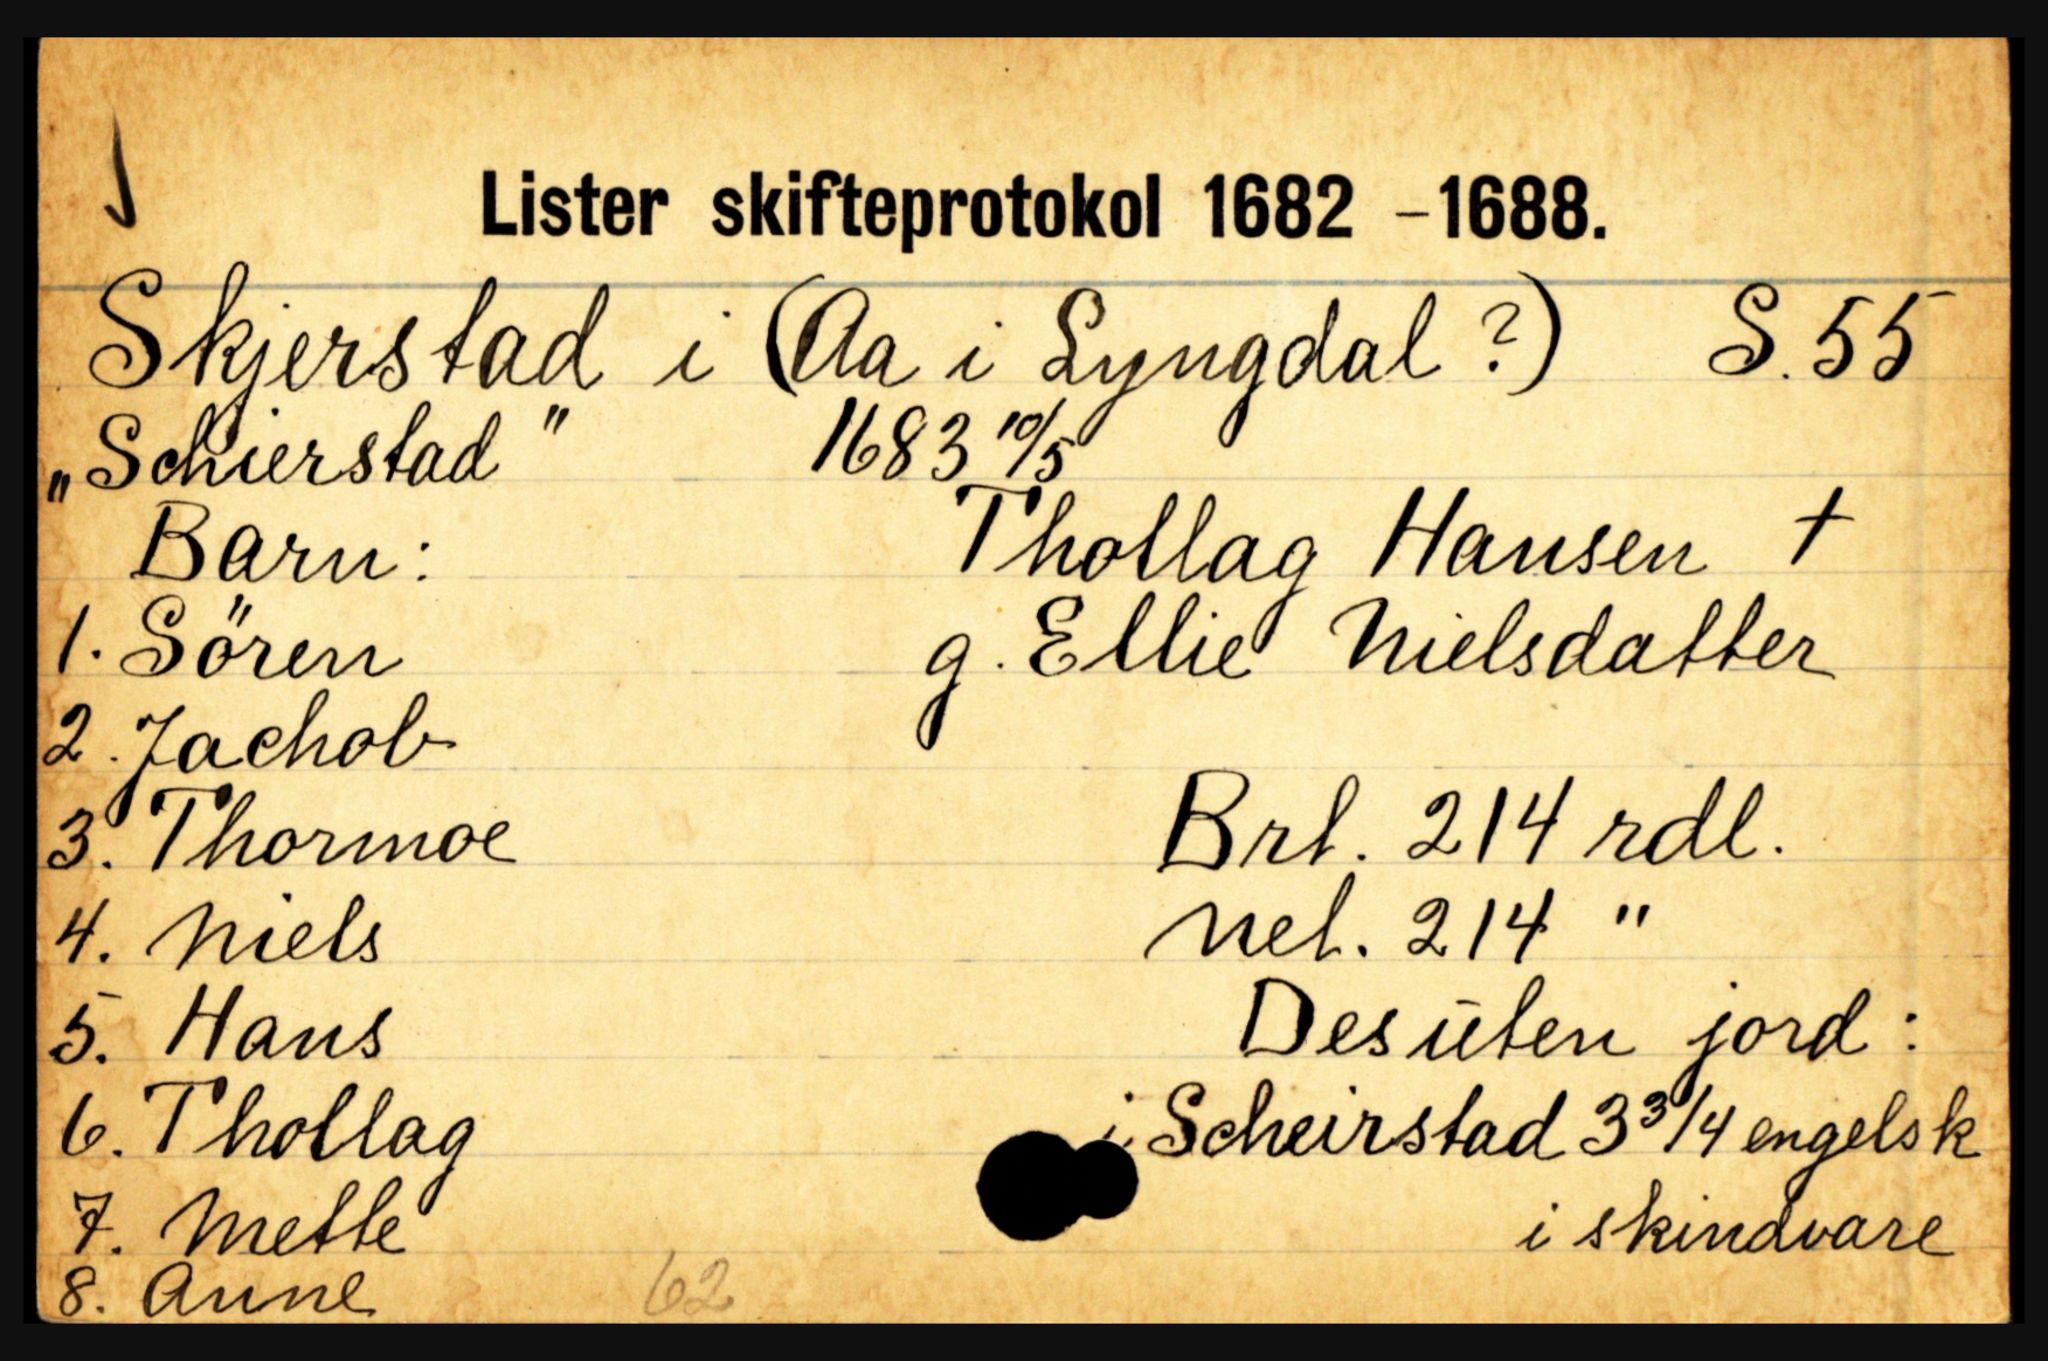 Lister skifteprotokol 1682 - 1688.
Skjerstad i (Aa i Lyngdal?) S. 55
„Schierstad" 1683 10/5
Barn: Thollag Hansen †
1. Sören g. Ellie Nielsdatter
2. Jachob
3. Thormoe Brt. 214 rdl.
4. Niels Net. 214 "
5. Hans Desūten jord:
6. Thollag i Scheirstad 3 3/4 engelsk
7. Mette i skindvare
8. Anne 62